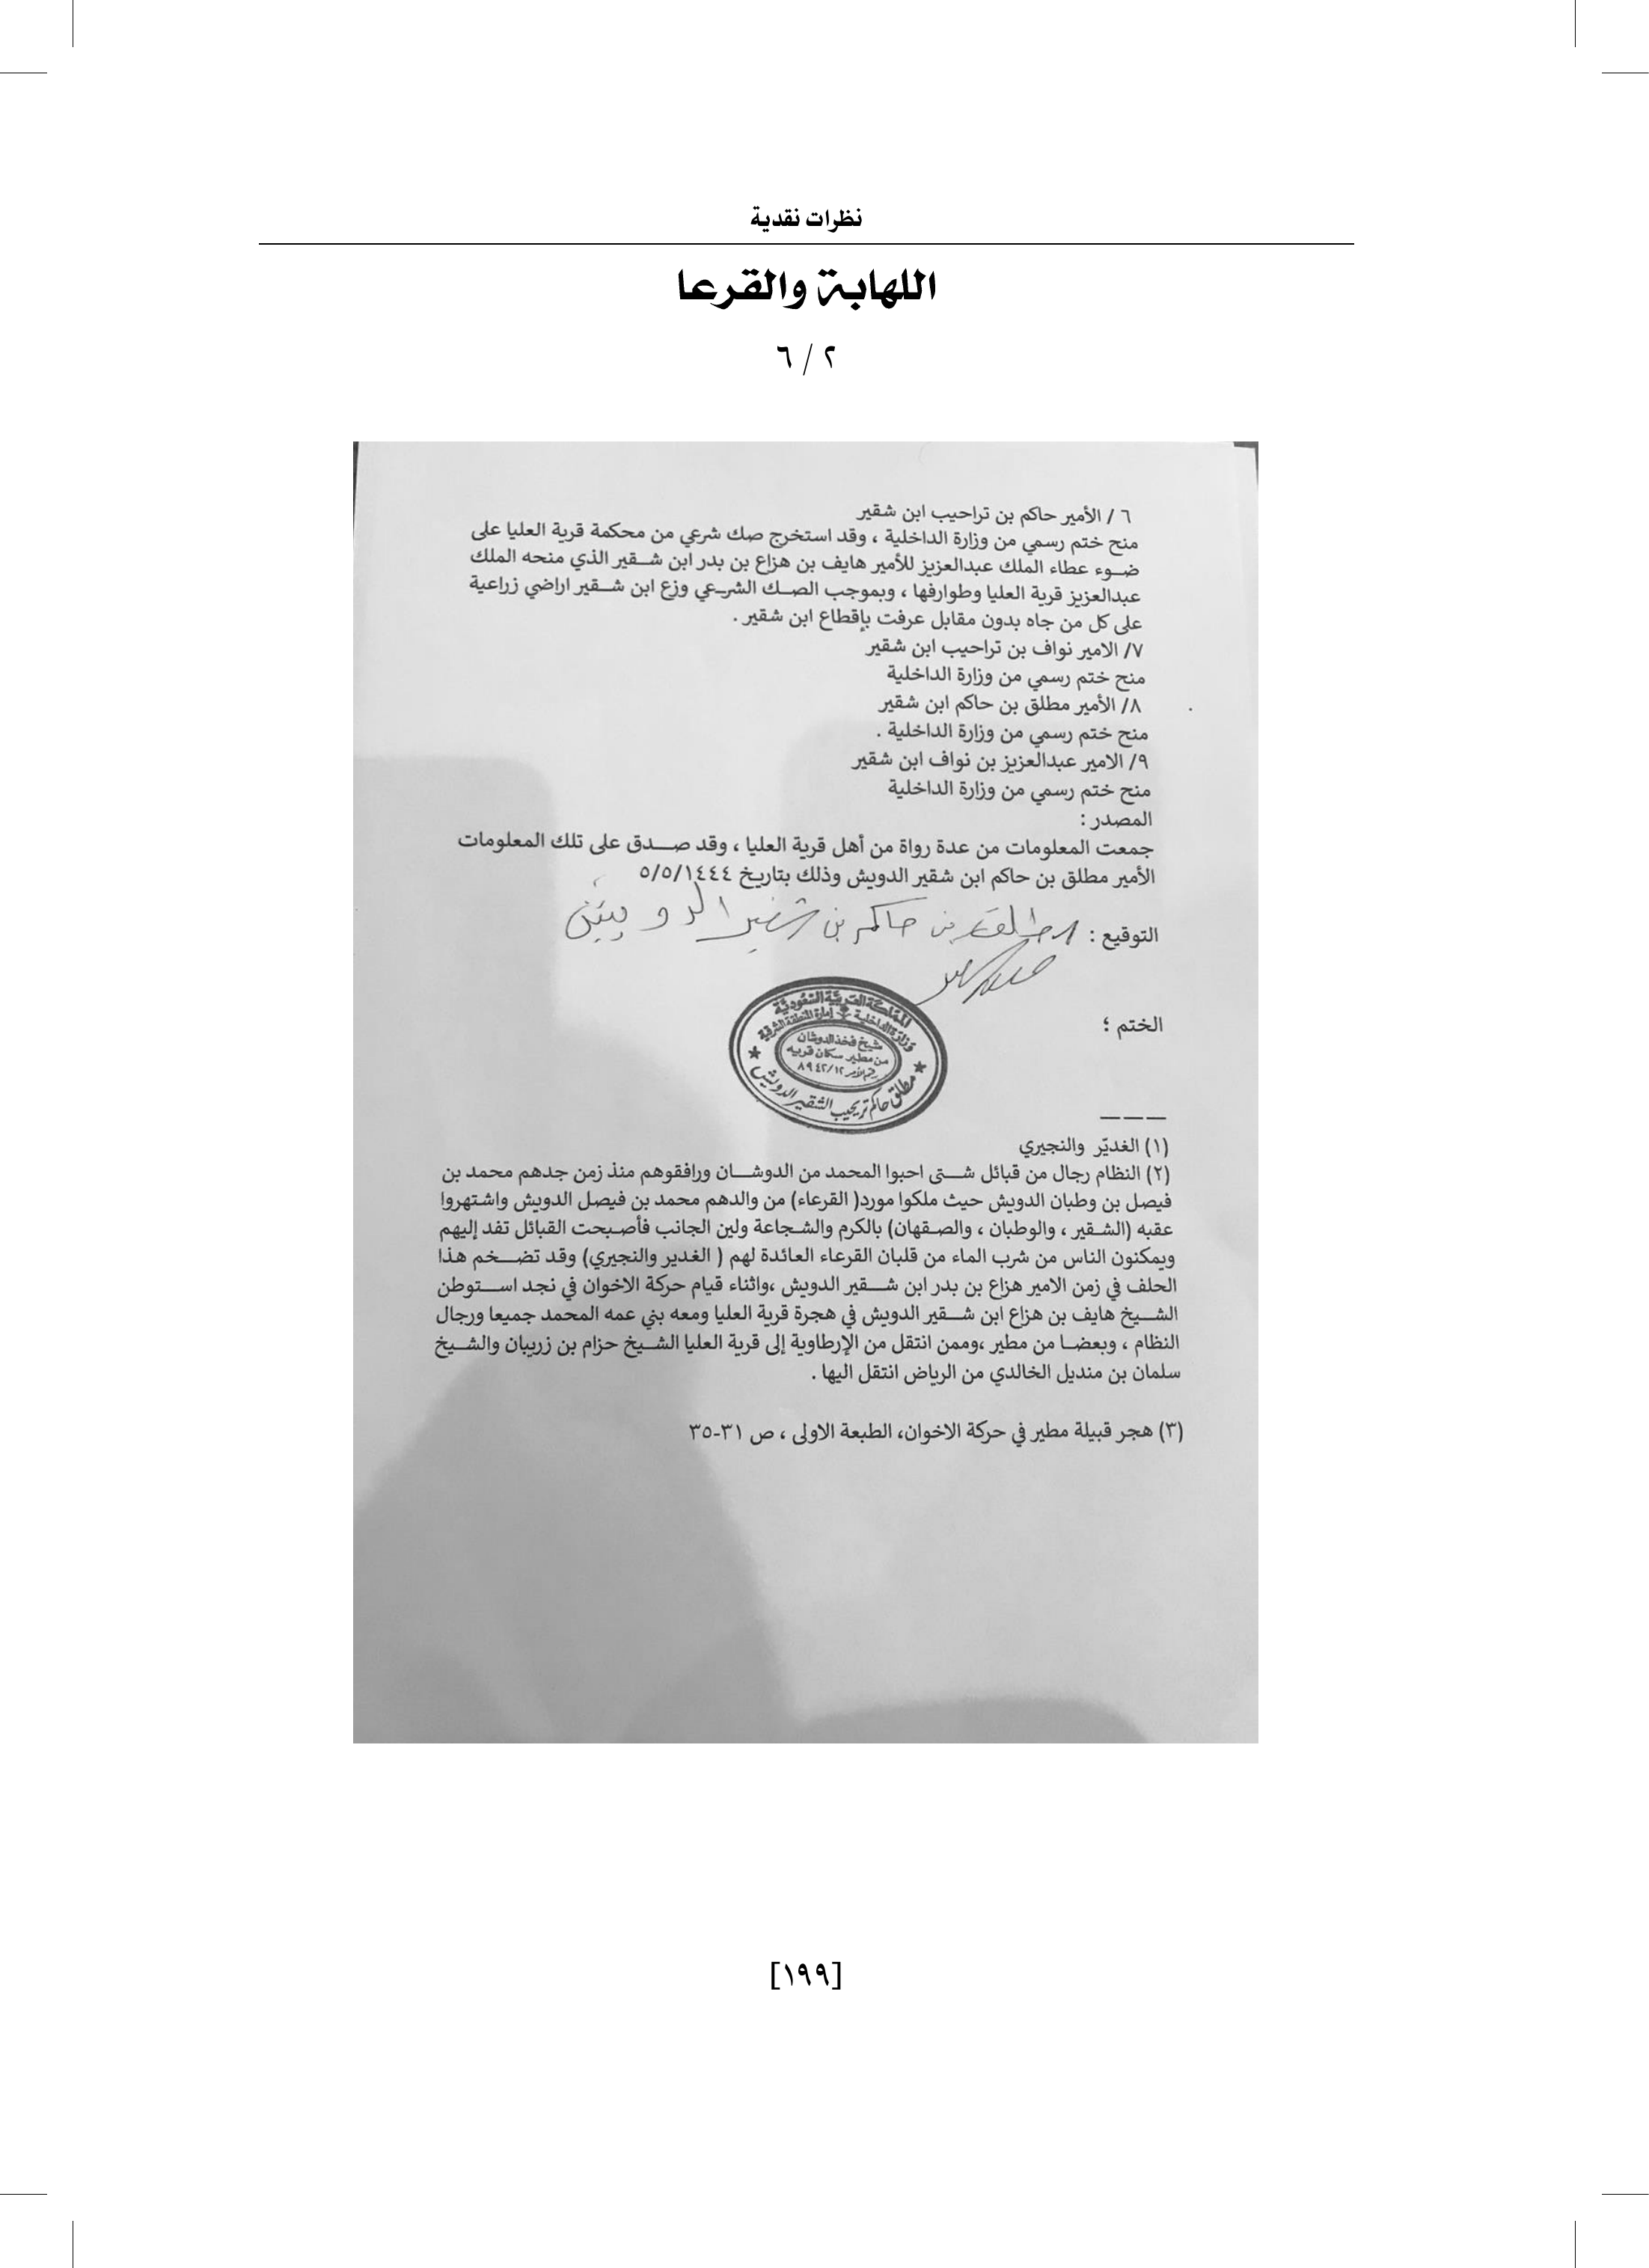 نظرات نقدية
اللهابة والقرعا
٢ / ٦
٦ / الأمير حاكم بن تراحيب ابن شقير
منح ختم رسمي من وزارة الداخلية ، وقد استخرج صك شرعي من محكمة قرية العليا على
ضوء عطاء الملك عبدالعزيز للأمير هايف بن هزاع بن بدر ابن شقير الذي منحه الملك
عبدالعزيز قرية العليا وطوارفها ، وبموجب الصك الشرعي وزع ابن شقير اراضي زراعية
على كل من جاه بدون مقابل عرفت بإقطاع ابن شقير .
٧/ الامير نواف بن تراحيب ابن شقير
منح ختم رسمي من وزارة الداخلية
٨/ الأمير مطلق بن حاكم ابن شقير
منح ختم رسمي من وزارة الداخلية .
٩/ الامير عبدالعزيز بن نواف ابن شقير
منح ختم رسمي من وزارة الداخلية
المصدر :
جمعت المعلومات من عدة رواة من أهل قرية العليا ، وقد صدق على تلك المعلومات
الأمير مطلق بن حاكم ابن شقير الدويش وذلك بتاريخ ٥/٥/١٤٤٤
التوقيع : مطلق بن حاكم بن شقير الدويش
الختم ؛
المملكة العربية السعودية
وزارة الداخلية إمارة المنطقة الشرقية
شيخ فخذ الدوشان
من مطير سكان قريه
رقم الأمر ٨٩٤٢/١٢
مطلق حاكم تريحيب الشقير الدويش
(١) الغديّر والنجيري
(٢) النظام رجال من قبائل شتى احبوا المحمد من الدوشان ورافقوهم منذ زمن جدهم محمد بن
فيصل بن وطبان الدويش حيث ملكوا مورد( القرعاء) من والدهم محمد بن فيصل الدويش واشتهروا
عقبه (الشقير ، والوطبان ، والصقهان) بالكرم والشجاعة ولين الجانب فأصبحت القبائل تفد إليهم
ويمكنون الناس من شرب الماء من قلبان القرعاء العائدة لهم ( الغدير والنجيري) وقد تضخم هذا
الحلف في زمن الامير هزاع بن بدر ابن شقير الدويش ،واثناء قيام حركة الاخوان في نجد استوطن
الشيخ هايف بن هزاع ابن شقير الدويش في هجرة قرية العليا ومعه بني عمه المحمد جميعا ورجال
النظام ، وبعضا من مطير ،وممن انتقل من الإرطاوية إلى قرية العليا الشيخ حزام بن زريبان والشيخ
سلمان بن منديل الخالدي من الرياض انتقل اليها .
(٣) هجر قبيلة مطير في حركة الاخوان، الطبعة الاولى ، ص ٣١-٣٥
[١٩٩]